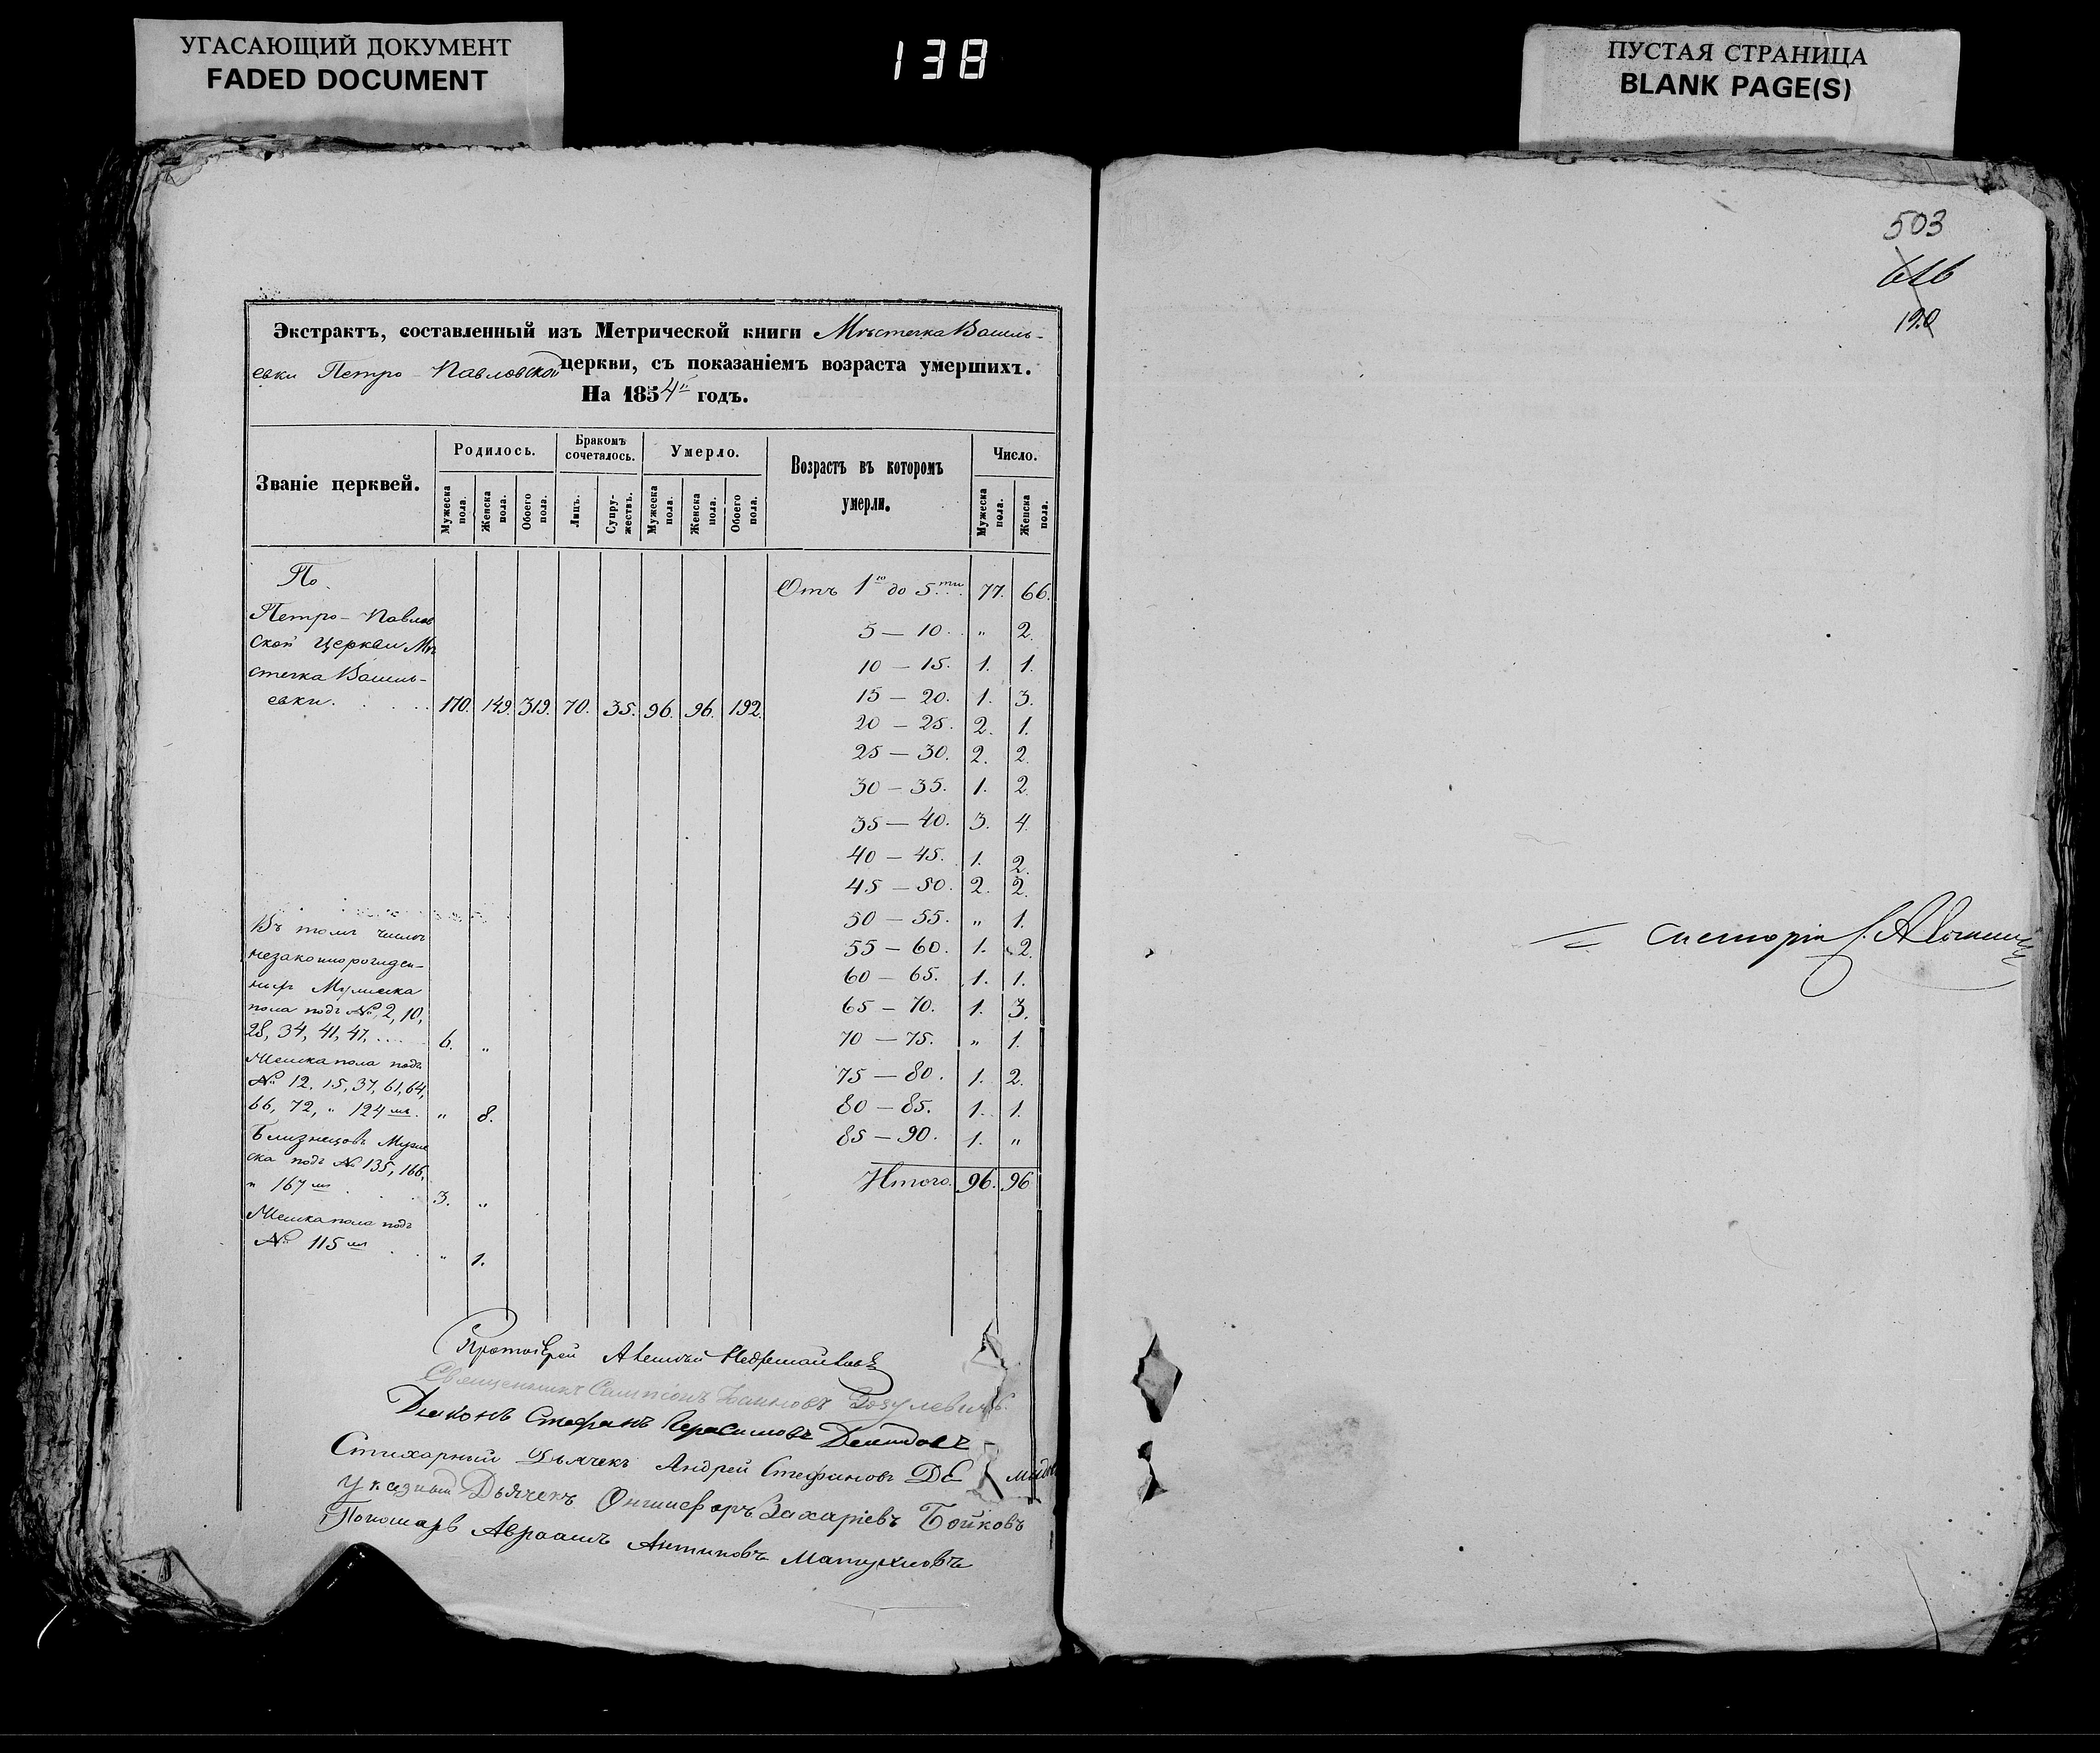 УГАСАЮЩИЙ ДОКУМЕНТ
FADED DOCUMENT
138
ПУСТАЯ СТРАНИЦА
BLANK PAGE(S)
Экстрактъ, составленный изъ Метрической книги Мѣстечка Василь-
евки Петро-Павловской церкви, съ показаніемъ возраста умершихъ.
На 1854й годъ.
Званіе церквей.
Родилось.
Бракомъ сочеталось.
Умерло.
Возрастъ въ которомъ умерли.
Число.
Мужеска пола.
Женска пола.
Обоего пола.
Лицъ.
Супружествъ.
Мужеска пола.
Женска пола.
Обоего пола.
Мужеска пола.
Женска пола.
По
Петро-Павлов
ской Церкви Мѣ
стечка Василь-
евки. 170. 149. 319. 70. 35. 96. 96. 192.
Отъ 1го до 5ти 77. 66.
5 — 10. „ 2.
10 — 15. 1. 1.
15 — 20. 1. 3.
20 — 25. 2. 1.
25 — 30. 2. 2.
30 — 35. 1. 2.
35 — 40. 3. 4.
40 — 45. 1. 2.
45 — 50. 2. 2.
50 — 55. „ 1.
55 — 60. 1. 2.
60 — 65. 1. 1.
65 — 70. 1. 3.
70 — 75. „ 1.
75 — 80. 1. 2.
80 — 85. 1. 1.
85 — 90. 1. „
Итого. 96. 96
Въ томъ числѣ
незаконнорожден-
ныхъ Мужеска
пола подъ №, 2, 10,
28, 34, 41, 47. 6. „
Женска пола подъ
№ 12, 15, 37, 61, 64,
66, 72, „ 124мъ. „ 8.
Близнецовъ Муже
ска подъ № 135, 166,
„ 167мъ 3. „
Женска пола подъ
№ 115мъ „ 1.
Протоіерей
Священникъ Сампсонъ Іоанновъ
Діаконъ Стефанъ Герасимовъ Демидовъ
Стихарный Дьячекъ Андрей Стефановъ Де мидов
Указный Дьячекъ Онисифоръ Захаріевъ Бойковъ
Пономарь Авраамъ Антиповъ
503
616
190
систорія